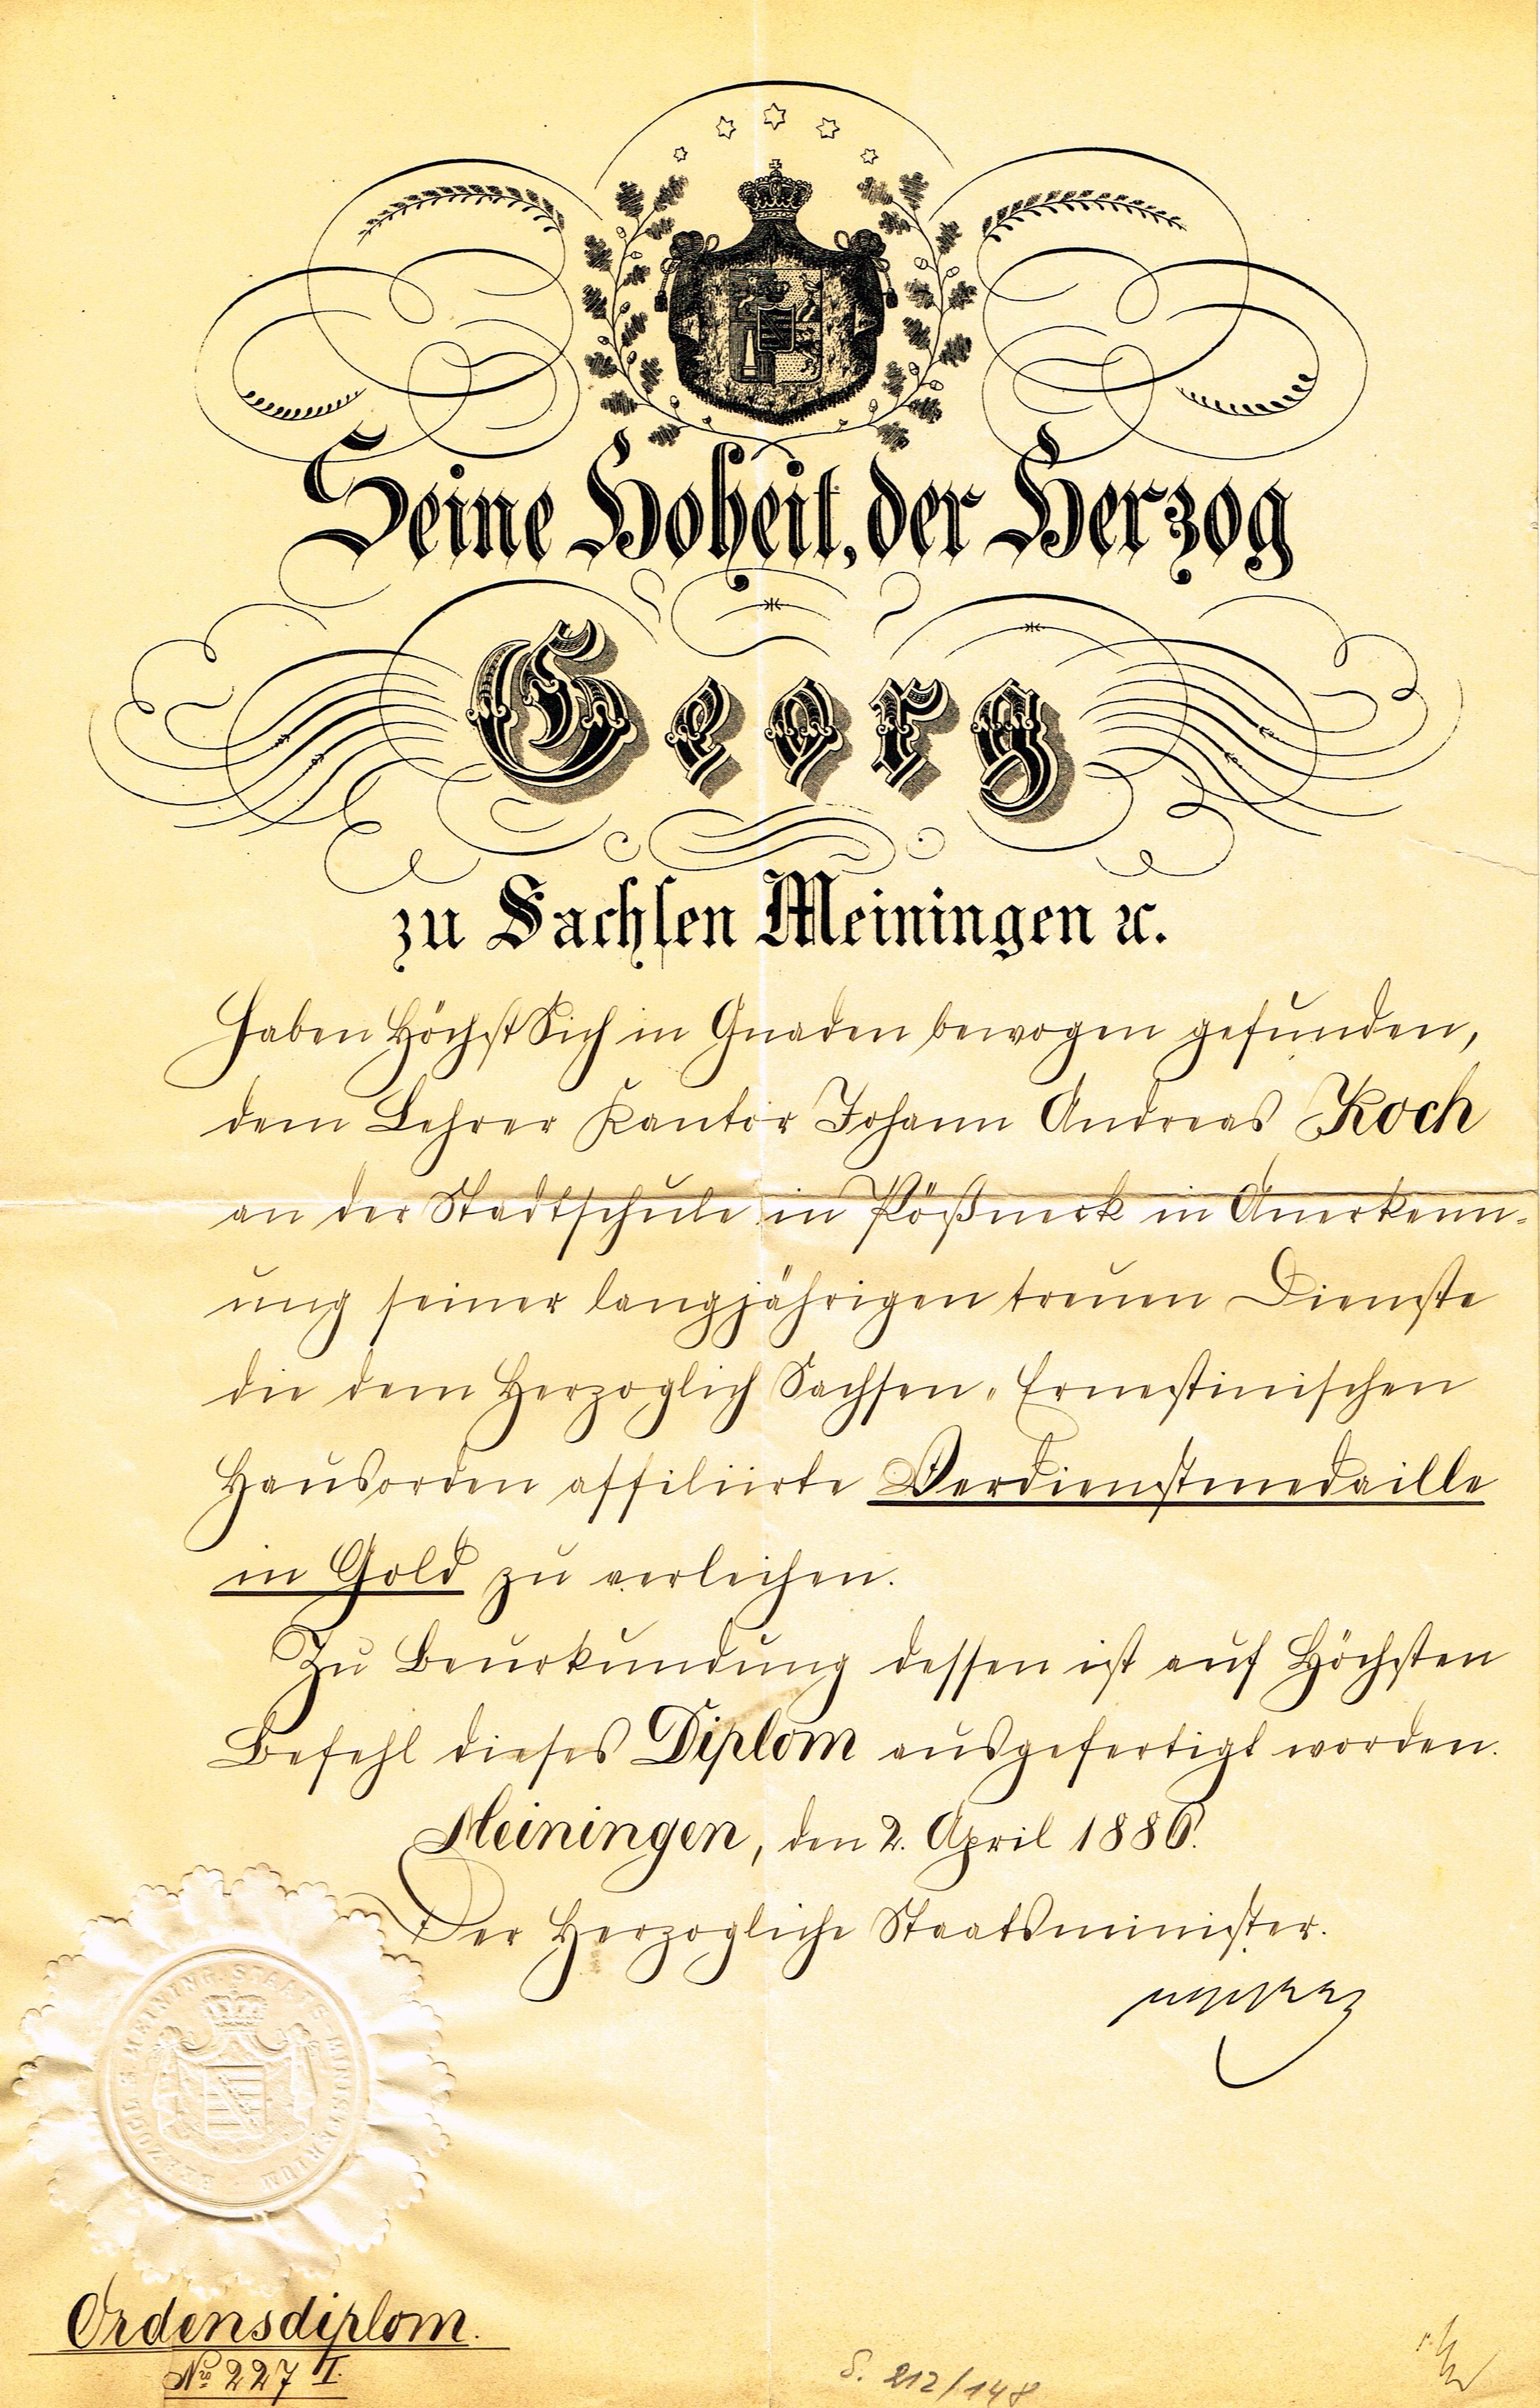 Seine Hoheit, der Herzog
Georg
zu Sachsen Meiningen ꝛc.
Haben HöchstSich in Gnaden bewogen gefunden,
dem Lehrer Kantor Johann Andreas Koch
an der Stadtschule in Pößneck in Anerkenn-
ung seiner langjährigen treuen Dienste
die dem Herzoglich Sachsen-Ernestinischen
Hausorden affiliirte Verdienstmedaille
in Gold zu verleihen.
Zu Beurkundung dessen ist auf Höchsten
Befehl dieses Diplom ausgefertigt worden.
Meiningen, den 2. April 1886.
Der Herzogliche Staatsminister.
HERZOGL. S. MEINING. STAATS-MINISTERIUM
Ordensdiplom.
No 227 I.
S. 212/148